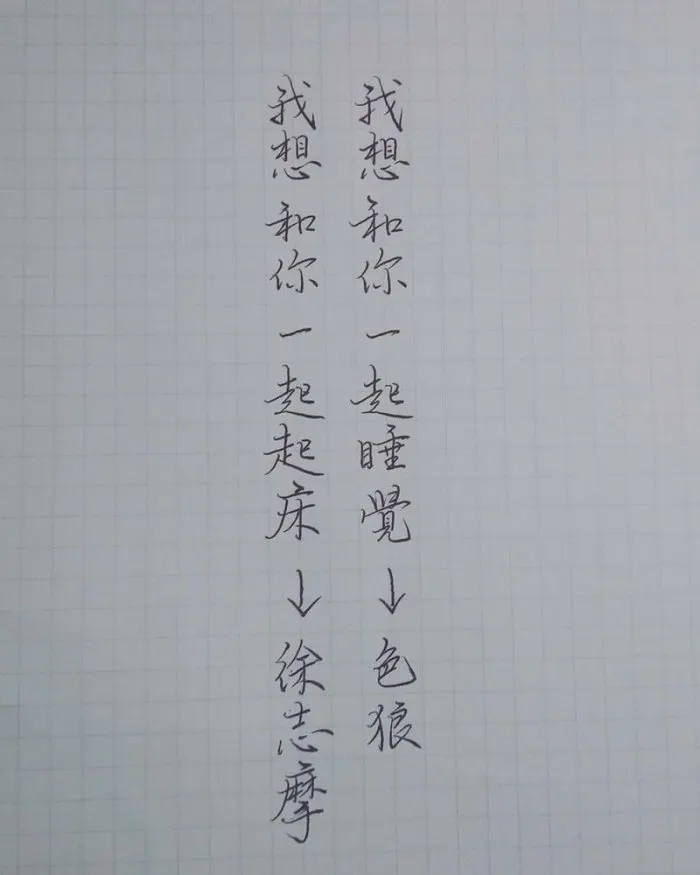 我想和你一起睡覺↓色狼
我想和你一起起床↓徐志摩